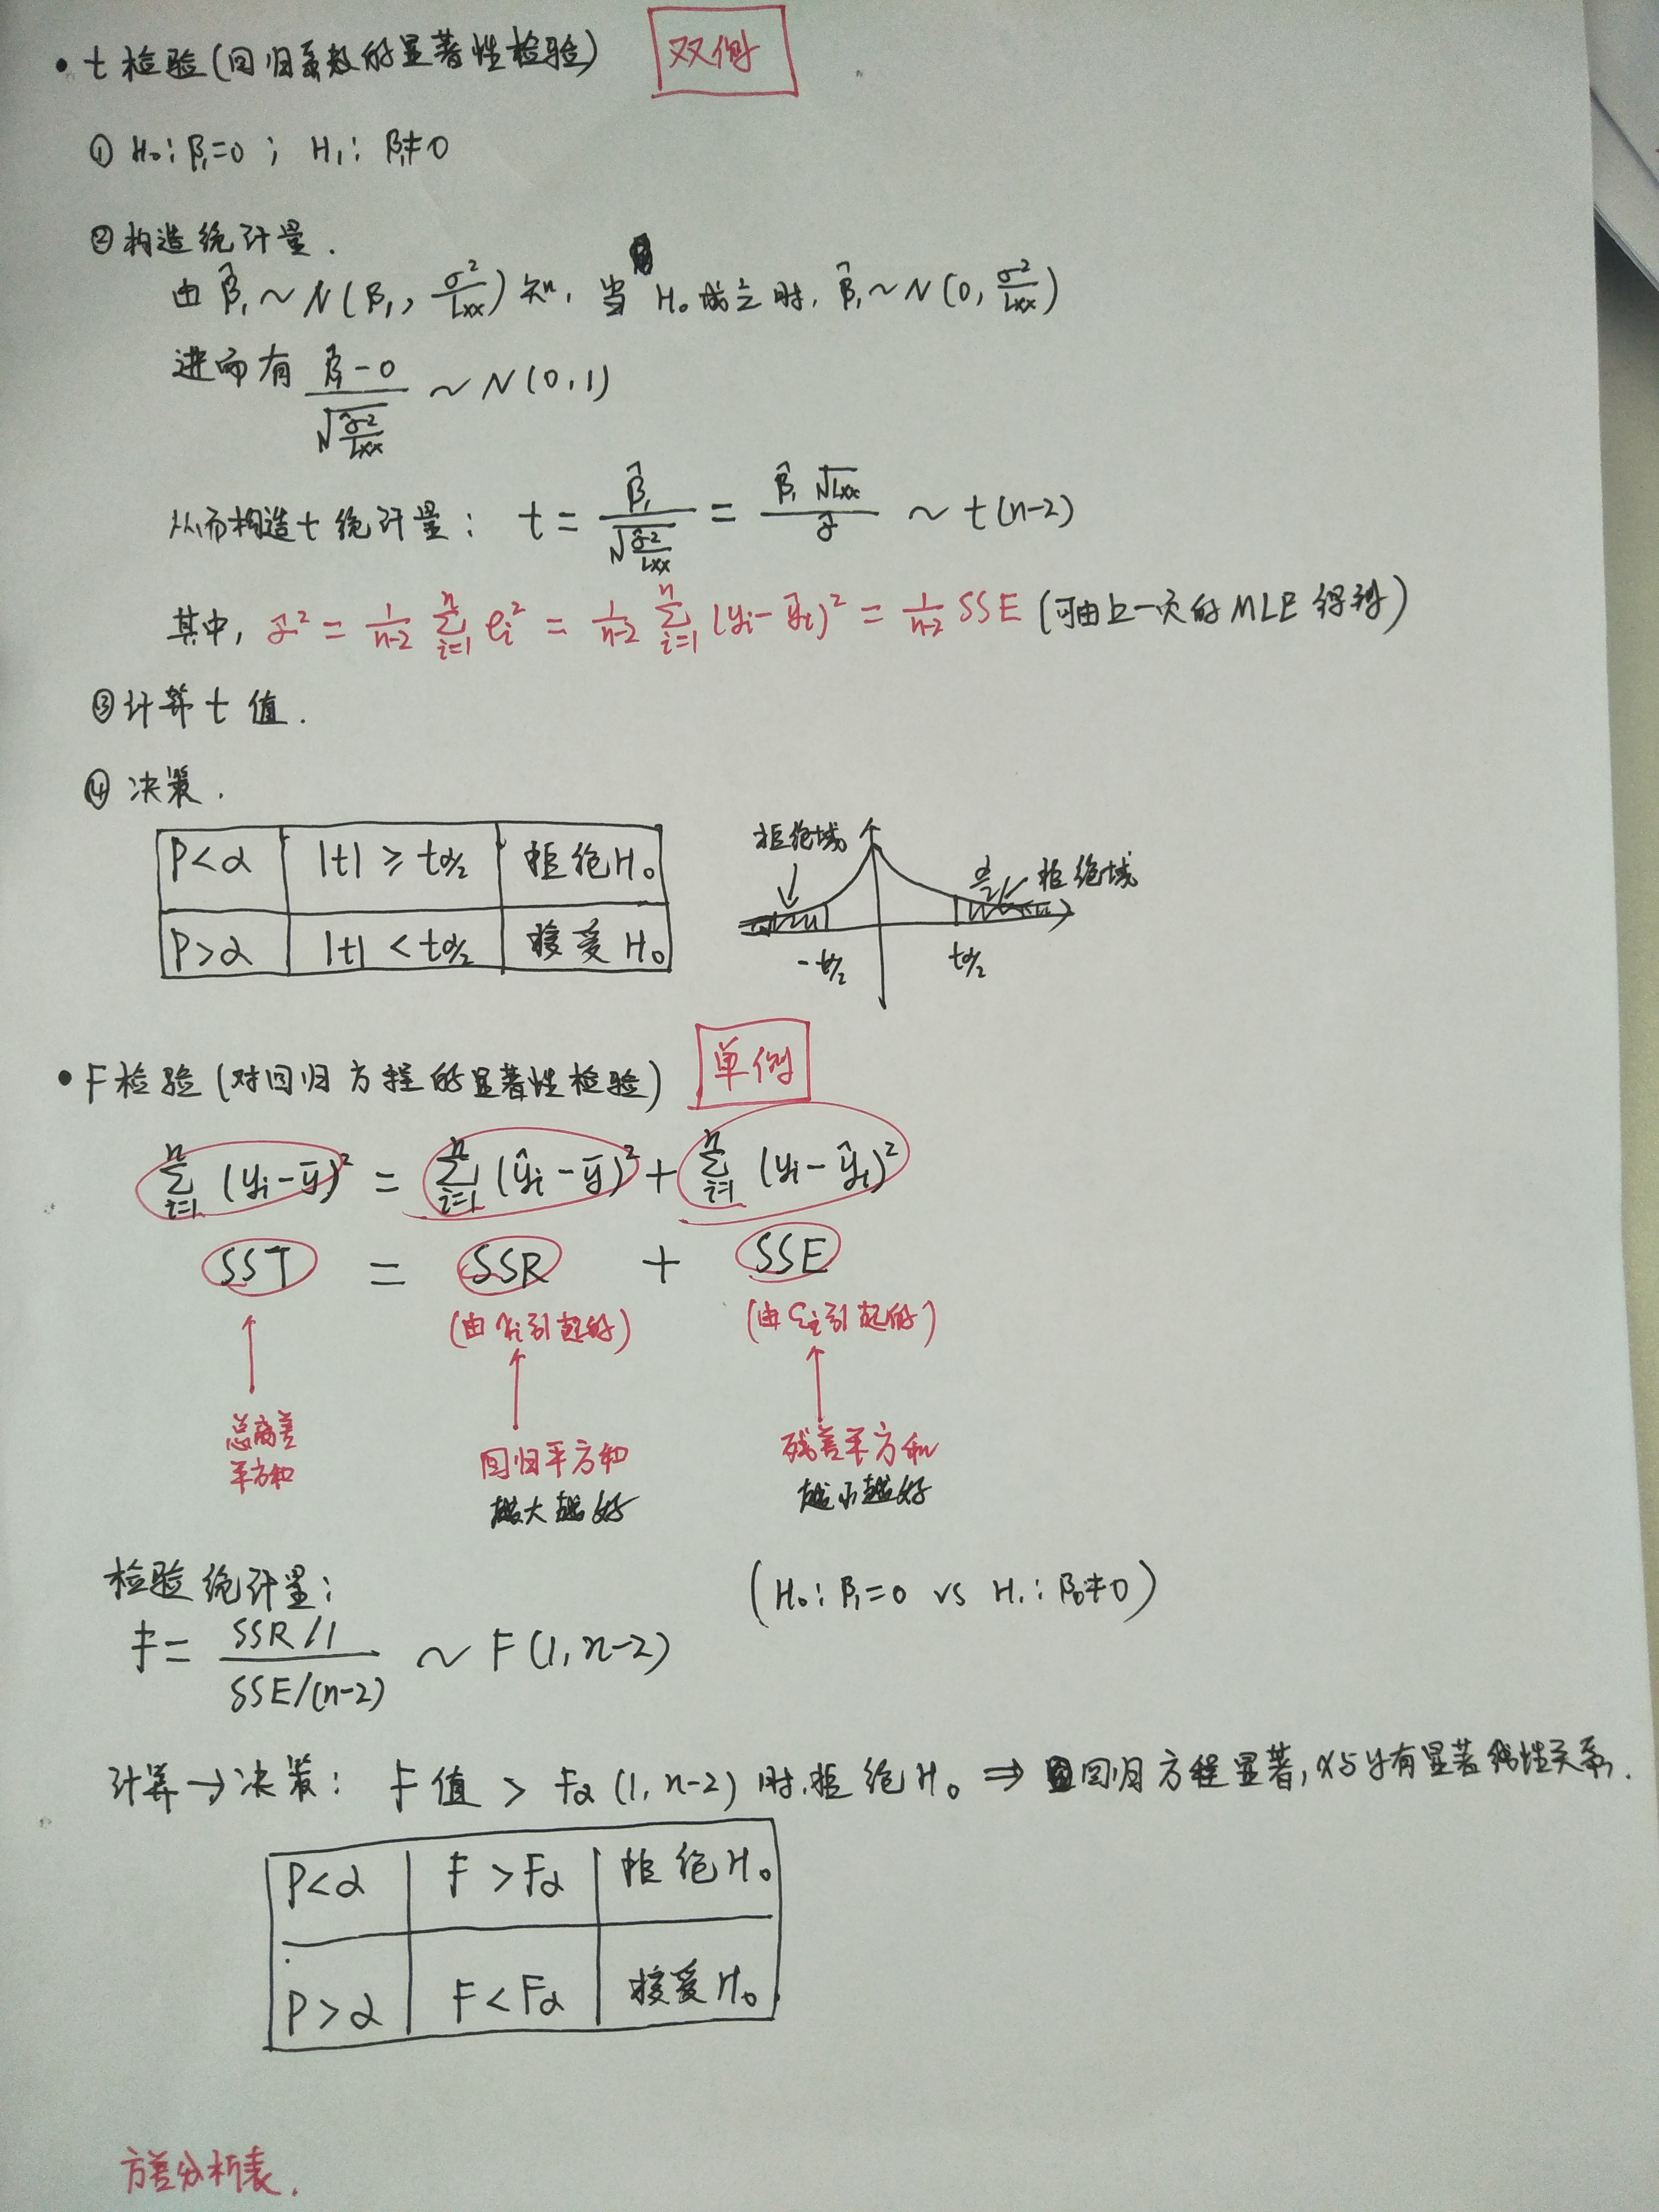 • t 检验(回归系数的显著性检验) 双侧
① H₀: β₁=0 ; H₁: β₁≠0
② 构造统计量.
由 β̂₁ ~ N(β₁, σ²/Lxx) 知, 当 H₀ 成立时, β̂₁ ~ N(0, σ²/Lxx)
进而有 (β̂₁-0)/√(σ̂²/Lxx) ~ N(0,1)
从而构造 t 统计量: t = β̂₁/√(σ̂²/Lxx) = β̂₁√Lxx/σ̂ ~ t(n-2)
其中, σ̂² = 1/(n-2) Σᵢ₌₁ⁿ eᵢ² = 1/(n-2) Σᵢ₌₁ⁿ (yᵢ-ŷᵢ)² = 1/(n-2) SSE (可由上一页的 MLE 得到)
③ 计算 t 值.
④ 决策.
P<α |t| ≥ tα/2 拒绝H₀
P>α |t| < tα/2 接受H₀
拒绝域 α/2 拒绝域
-tα/2 tα/2
• F 检验 (对回归方程的显著性检验) 单侧
Σᵢ₌₁ⁿ (yᵢ-ȳ)² = Σᵢ₌₁ⁿ (ŷᵢ-ȳ)² + Σᵢ₌₁ⁿ (yᵢ-ŷᵢ)²
SST = SSR + SSE
(由 xᵢ 引起的) (由 εᵢ 引起的)
总离差
平方和
回归平方和
越大越好
残差平方和
越小越好
检验统计量: (H₀: β₁=0 vs H₁: β₀≠0)
F = (SSR/1)/(SSE/(n-2)) ~ F(1, n-2)
计算→决策: F 值 > Fα (1, n-2) 时, 拒绝 H₀ ⇒ 回归方程显著, x与y有显著线性关系.
P<α F>Fα 拒绝H₀
P>α F<Fα 接受H₀
方差分析表.